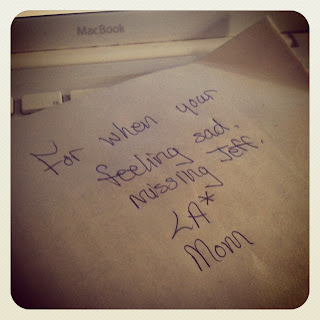 MacBook
For when your
feeling sad.
missing Jeff.
LA*
Mom